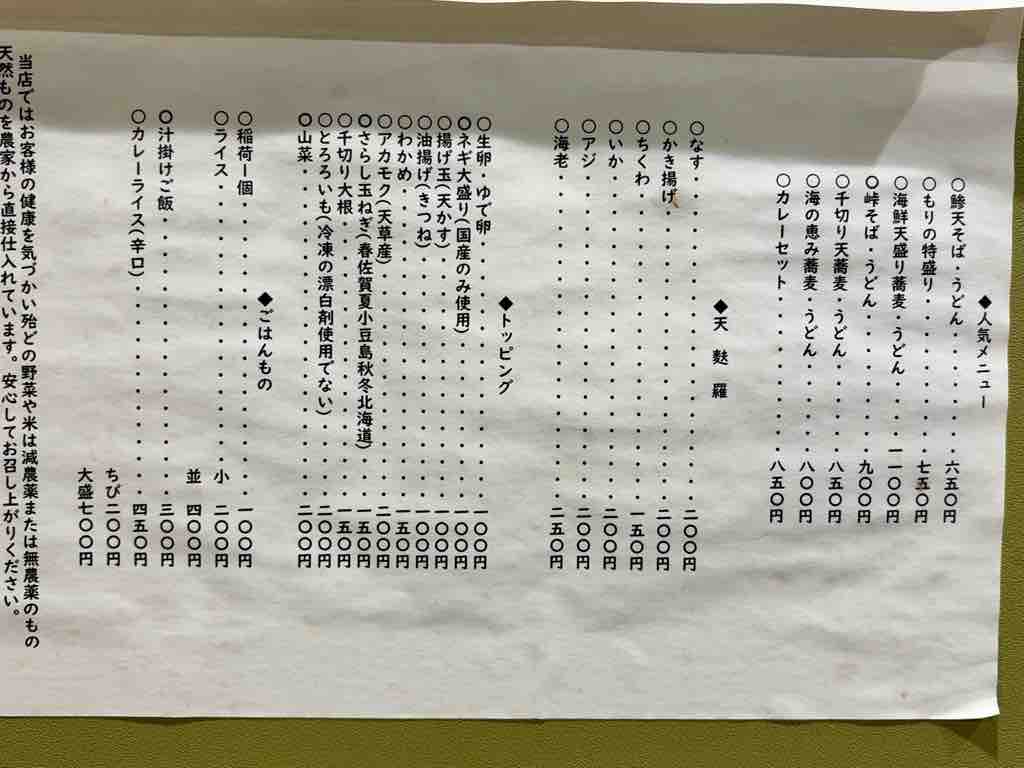 ◆人気メニュー
○鯵天そば・うどん・・・・・・・六五〇円
○もりの特盛り・・・・・・・・・七五〇円
○海鮮天盛り蕎麦・うどん・・・一一〇〇円
○峠そば・うどん・・・・・・・・九〇〇円
○千切り天蕎麦・うどん・・・・・八五〇円
○海の恵み蕎麦・うどん・・・・・八〇〇円
○カレーセット・・・・・・・・・八五〇円
◆天麩羅
○なす・・・・・・・・・・・・・二〇〇円
○かき揚げ・・・・・・・・・・・二〇〇円
○ちくわ・・・・・・・・・・・・一五〇円
○いか・・・・・・・・・・・・・二〇〇円
○アジ・・・・・・・・・・・・・二〇〇円
○海老・・・・・・・・・・・・・二五〇円
◆トッピング
○生卵・ゆで卵・・・・・・・・・一〇〇円
○ネギ大盛り(国産のみ使用)・・・一〇〇円
○揚げ玉(天かす)・・・・・・・・一〇〇円
○油揚げ(きつね)・・・・・・・・一〇〇円
○わかめ・・・・・・・・・・・・一五〇円
○アカモク(天草産)・・・・・・・二〇〇円
○さらし玉ねぎ(春佐賀夏小豆島秋冬北海道)・・一〇〇円
○千切り大根・・・・・・・・・・一五〇円
○とろろいも(冷凍の漂白剤使用でない)・・・二〇〇円
○山菜・・・・・・・・・・・・・二〇〇円
◆ごはんもの
○稲荷一個・・・・・・・・・・・一〇〇円
○ライス・・・・・・・・・・小 二〇〇円
並 四〇〇円
○汁掛けご飯・・・・・・・・・・三〇〇円
○カレーライス(辛口)・・・・・・四五〇円
ちび二〇〇円
大盛七〇〇円
当店ではお客様の健康を気づかい殆どの野菜や米は減農薬または無農薬のもの
天然ものを農家から直接仕入れています。安心してお召し上がりください。